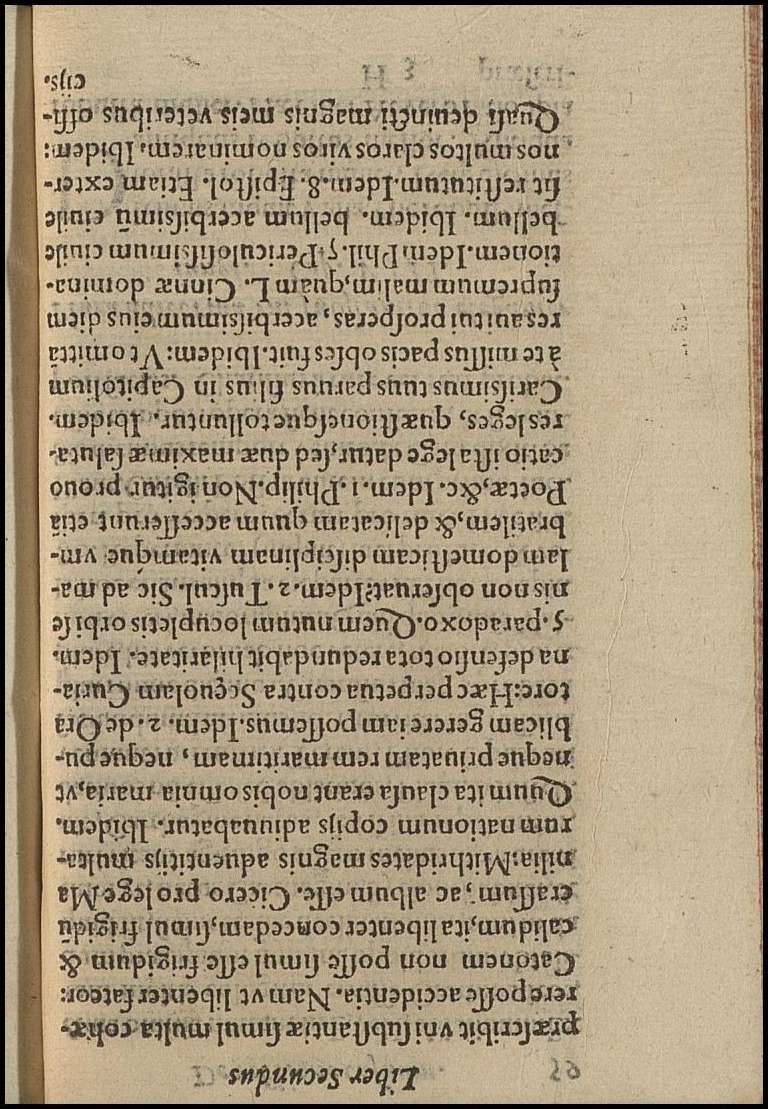 65 Liber Secundus
præscribit vni substantiæ simul multa cohæ-
rere posse accidentia. Nam vt libenter fateor:
Catonem non posse simul esse frigidum &
calidum, ita libenter concedam, simul frigidū
crassum, ac album esse. Cicero pro lege Ma
nilia: Mithridates magnis aduentitijs multa-
rum nationum copijs adiuuabatur. Ibidem.
Quum ita clausa erant nobis omnia maria, vt
neque priuatam rem maritimam, neque pu-
blicam gerere iam possemus. Idem. 2. de Ora
tore: Hæc perpetua contra Scęuolam Curia-
na defensio tota redundabit hilaritate. Idem.
5. paradoxo. Quem nutum locupletis orbi se
nis non obseruat? Idem. 2. Tuscul. Sic ad ma-
lam domesticam disciplinam vitamque vm-
bratilem, & delicatam quum accesserunt etiā
Poetæ, &c. Idem. 1. Philip. Non igitur prouo
catio ista lege datur, sed duæ maximæ saluta-
res leges, quæstionesque tolluntur. Ibidem.
Carissimus tuus paruus filius in Capitolium
à te missus pacis obses fuit. Ibidem: Vt omittā
res auitui prosperas, acerbissimum eius diem
supremum malim, quàm L. Cinnæ domina-
tionem. Idem Phil. 5. Periculosissimum ciuile
bellum. Ibidem. bellum acerbissimū ciuile
sit restitutum. Idem. 8. Epistol. Etiam exter-
nos multos claros viros nominarem. Ibidem:
Quasi deuincti magnis meis veteribus offi-
cijs.